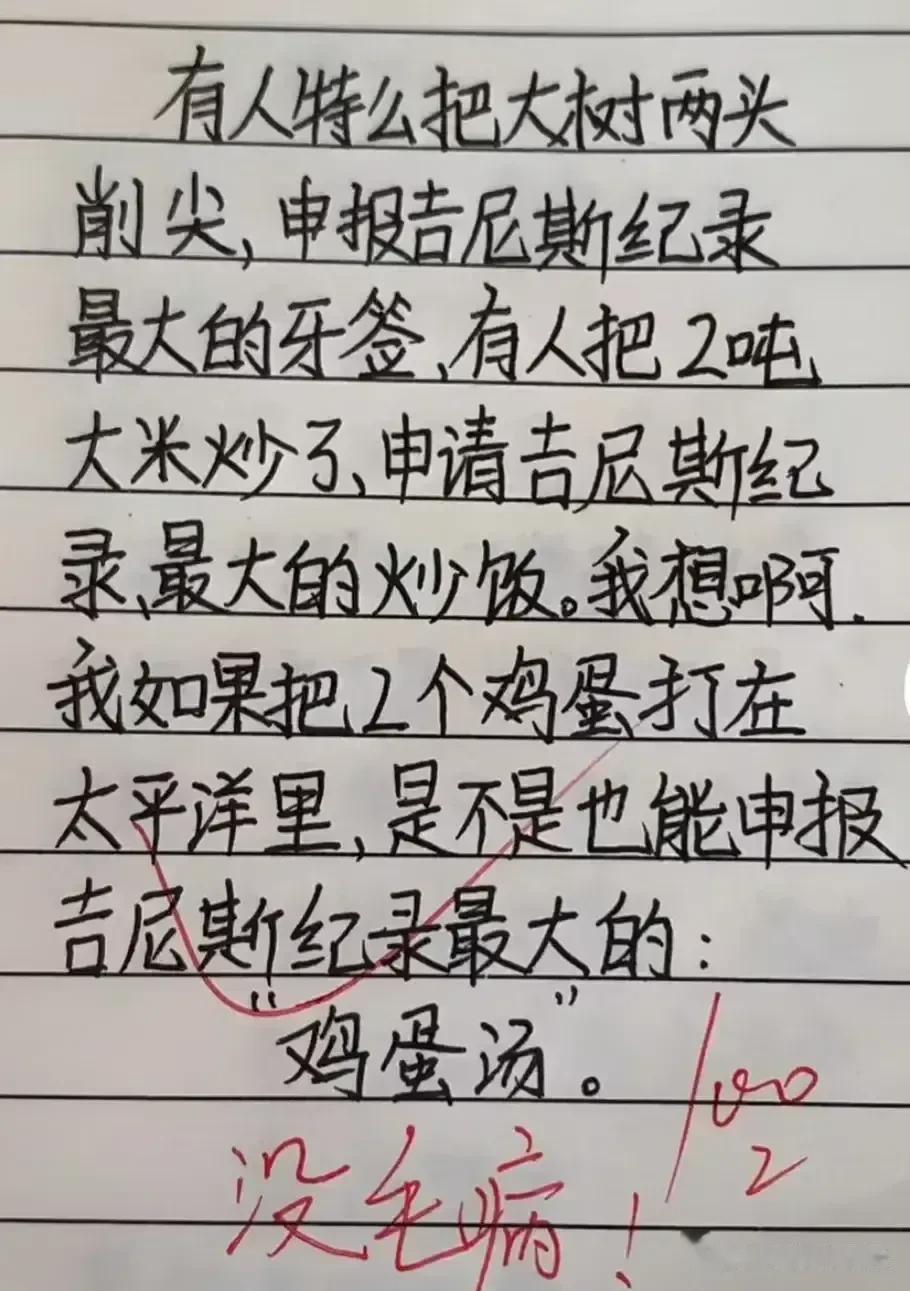 有人特么把大树两头
削尖,申报吉尼斯纪录
最大的牙签,有人把2吨
大米炒了、申请吉尼斯纪
录、最大的炒饭。我想啊.
我如果把2个鸡蛋打在
太平洋里,是不是也能申报
吉尼斯纪录最大的:
“鸡蛋汤”。
100
2
没毛病!